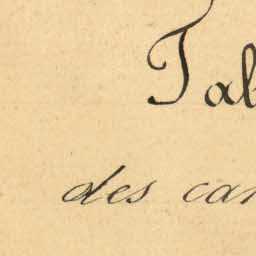 Tab
des car